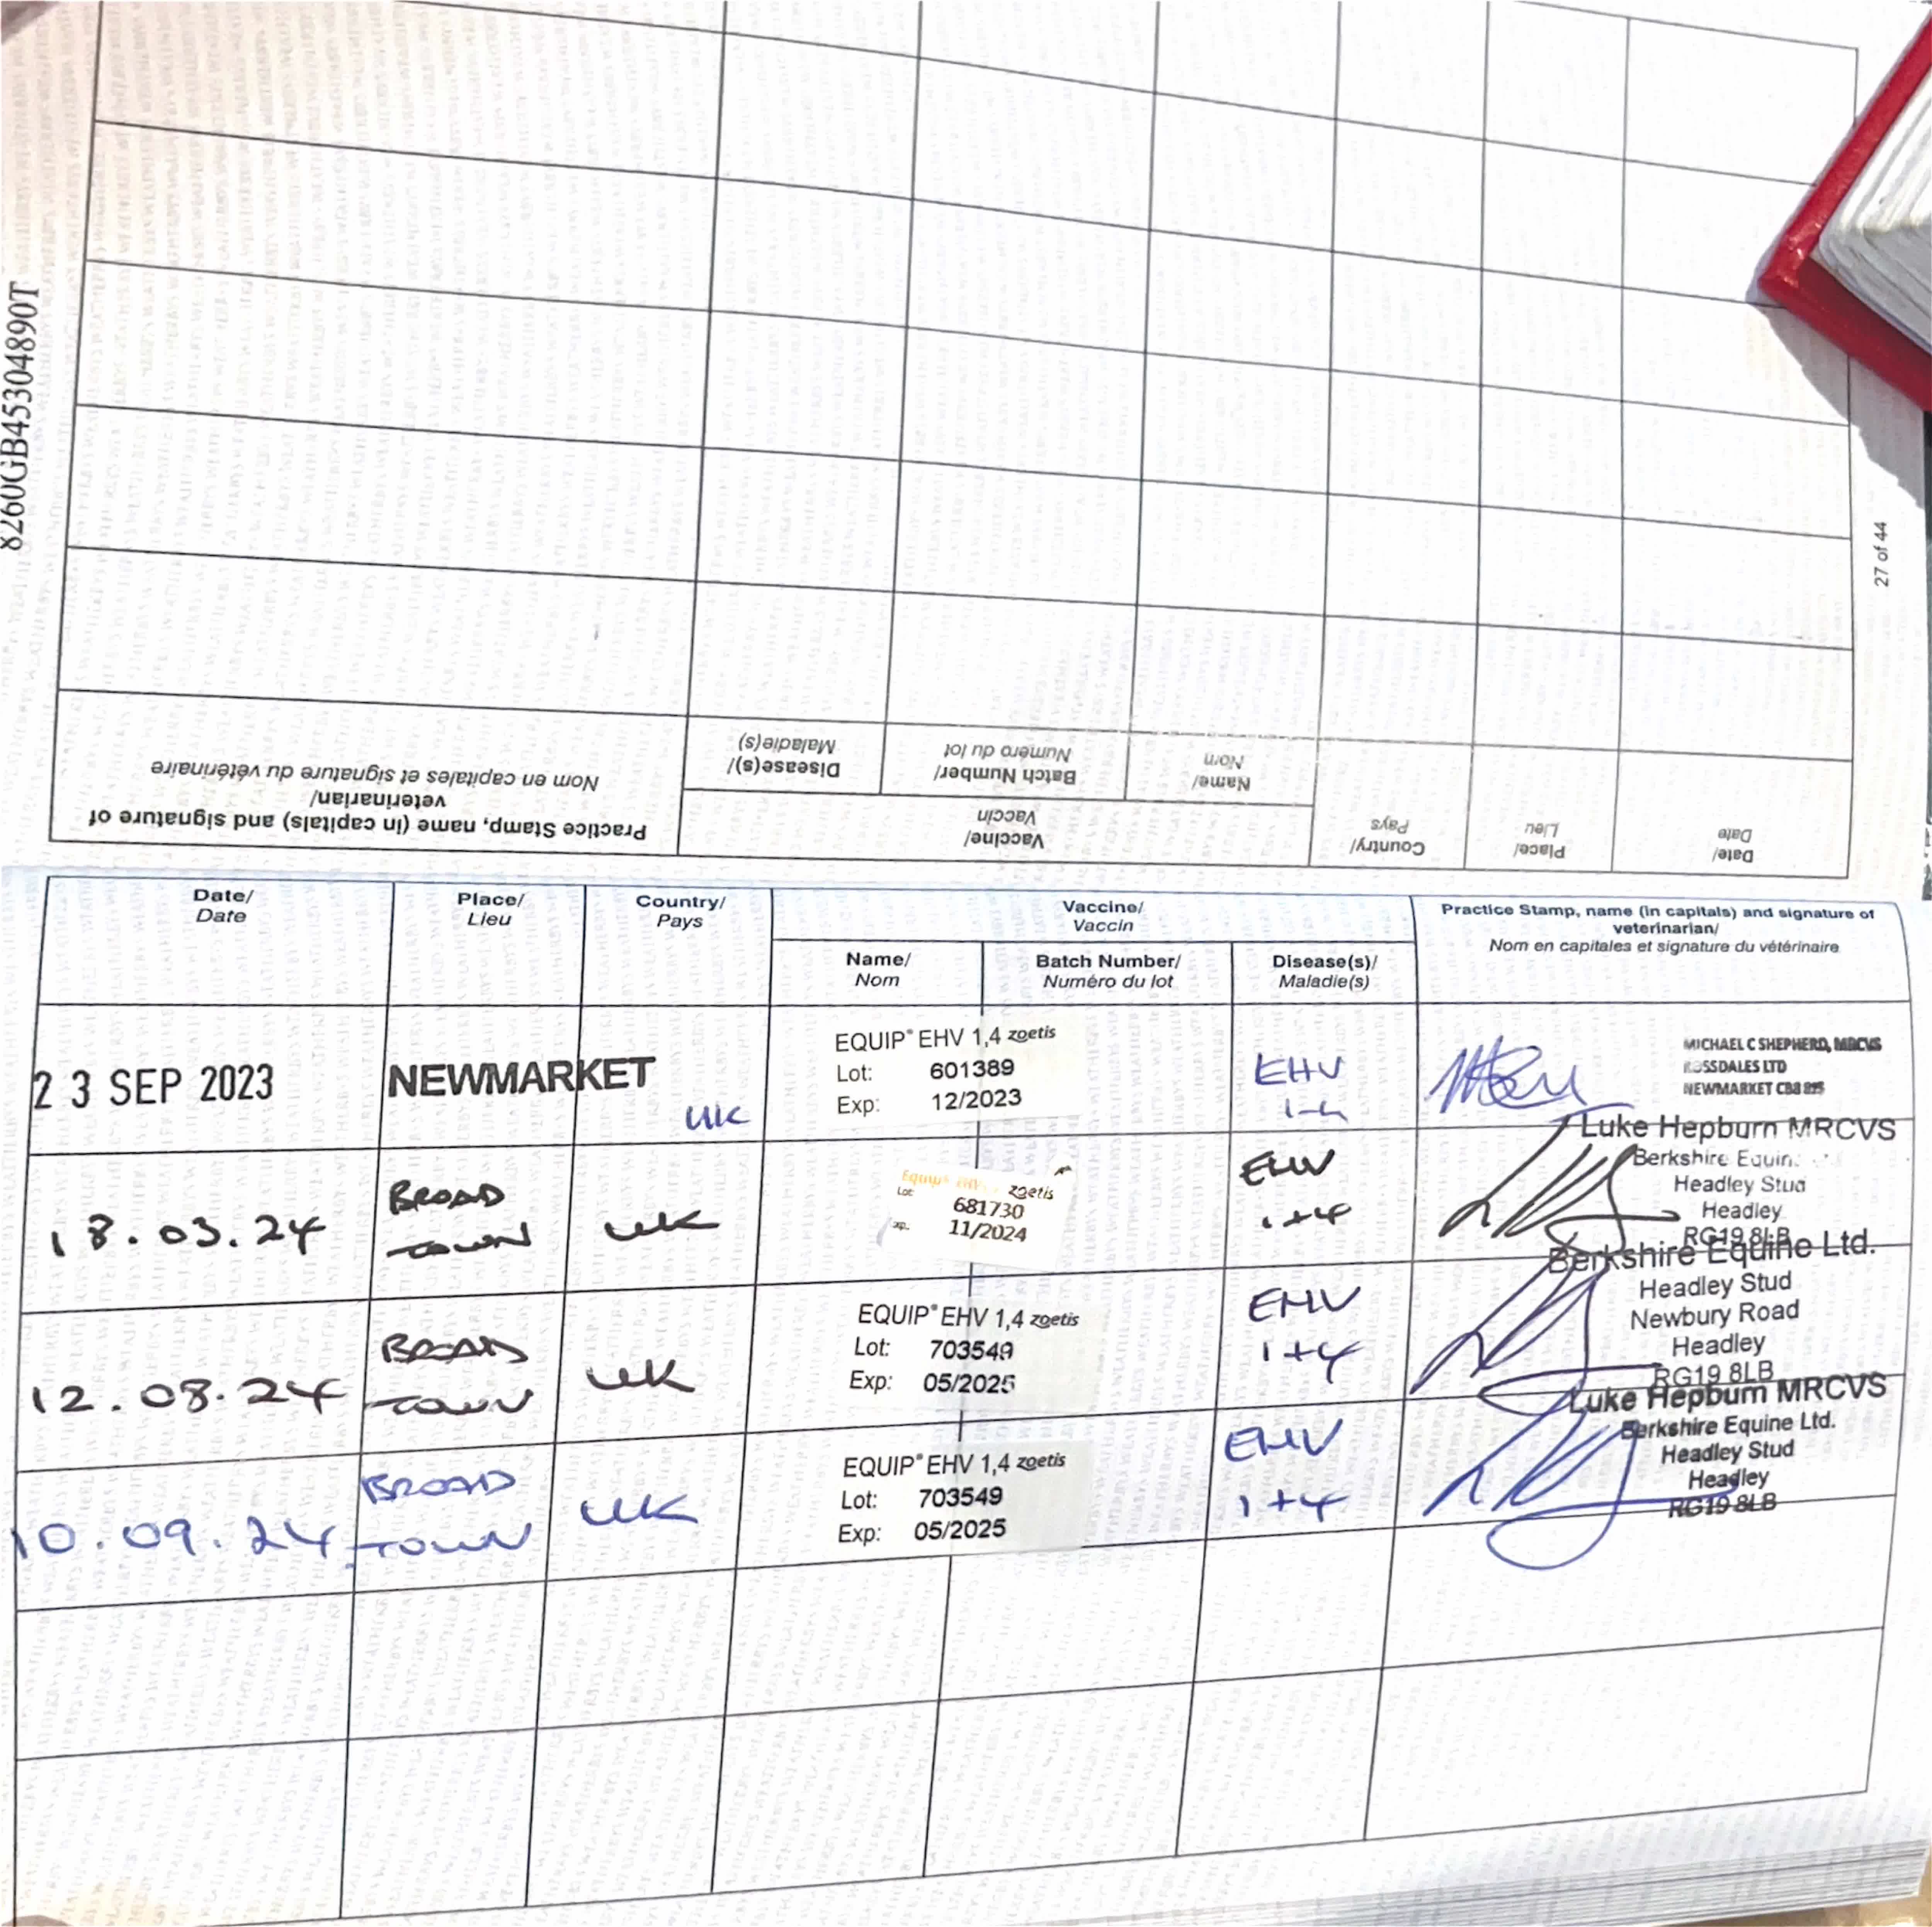 8260GB45304890T
27 of 44
Date/
Date
Place/
Lieu
Country/
Pays
Vaccine/
Vaccin
Name/
Nom
Batch Number/
Numéro du lot
Disease(s)/
Maladie(s)
Practice Stamp, name (in capitals) and signature of
veterinarian/
Nom en capitales et signature du vétérinaire
Date/
Date
Place/
Lieu
Country/
Pays
Vaccine/
Vaccin
Name/
Nom
Batch Number/
Numéro du lot
Disease(s)/
Maladie(s)
Practice Stamp, name (in capitals) and signature of
veterinarian/
Nom en capitales et signature du vétérinaire
23 SEP 2023
NEWMARKET
UK
EQUIP® EHV 1,4 zoetis
Lot: 601389
Exp: 12/2023
EHV
1-4
MICHAEL C SHEPHERD, MRCVS
ROSSDALES LTD
NEWMARKET CB8
18.03.24
BROAD
TOWN
UK
Equip® EHV zoetis
Lot: 681730
xp. 11/2024
EHV
1+4
Luke Hepburn MRCVS
Berkshire Equin
Headley Stud
Headley
RG19 8LB
12.08.24
BROAD
TOWN
UK
EQUIP® EHV 1,4 zoetis
Lot: 703549
Exp: 05/2025
EHV
1+4
Berkshire Equine Ltd.
Headley Stud
Newbury Road
Headley
RG19 8LB
10.09.24
BROAD
TOWN
UK
EQUIP® EHV 1,4 zoetis
Lot: 703549
Exp: 05/2025
EHV
1+4
Luke Hepburn MRCVS
Berkshire Equine Ltd.
Headley Stud
Headley
RG19 8LB